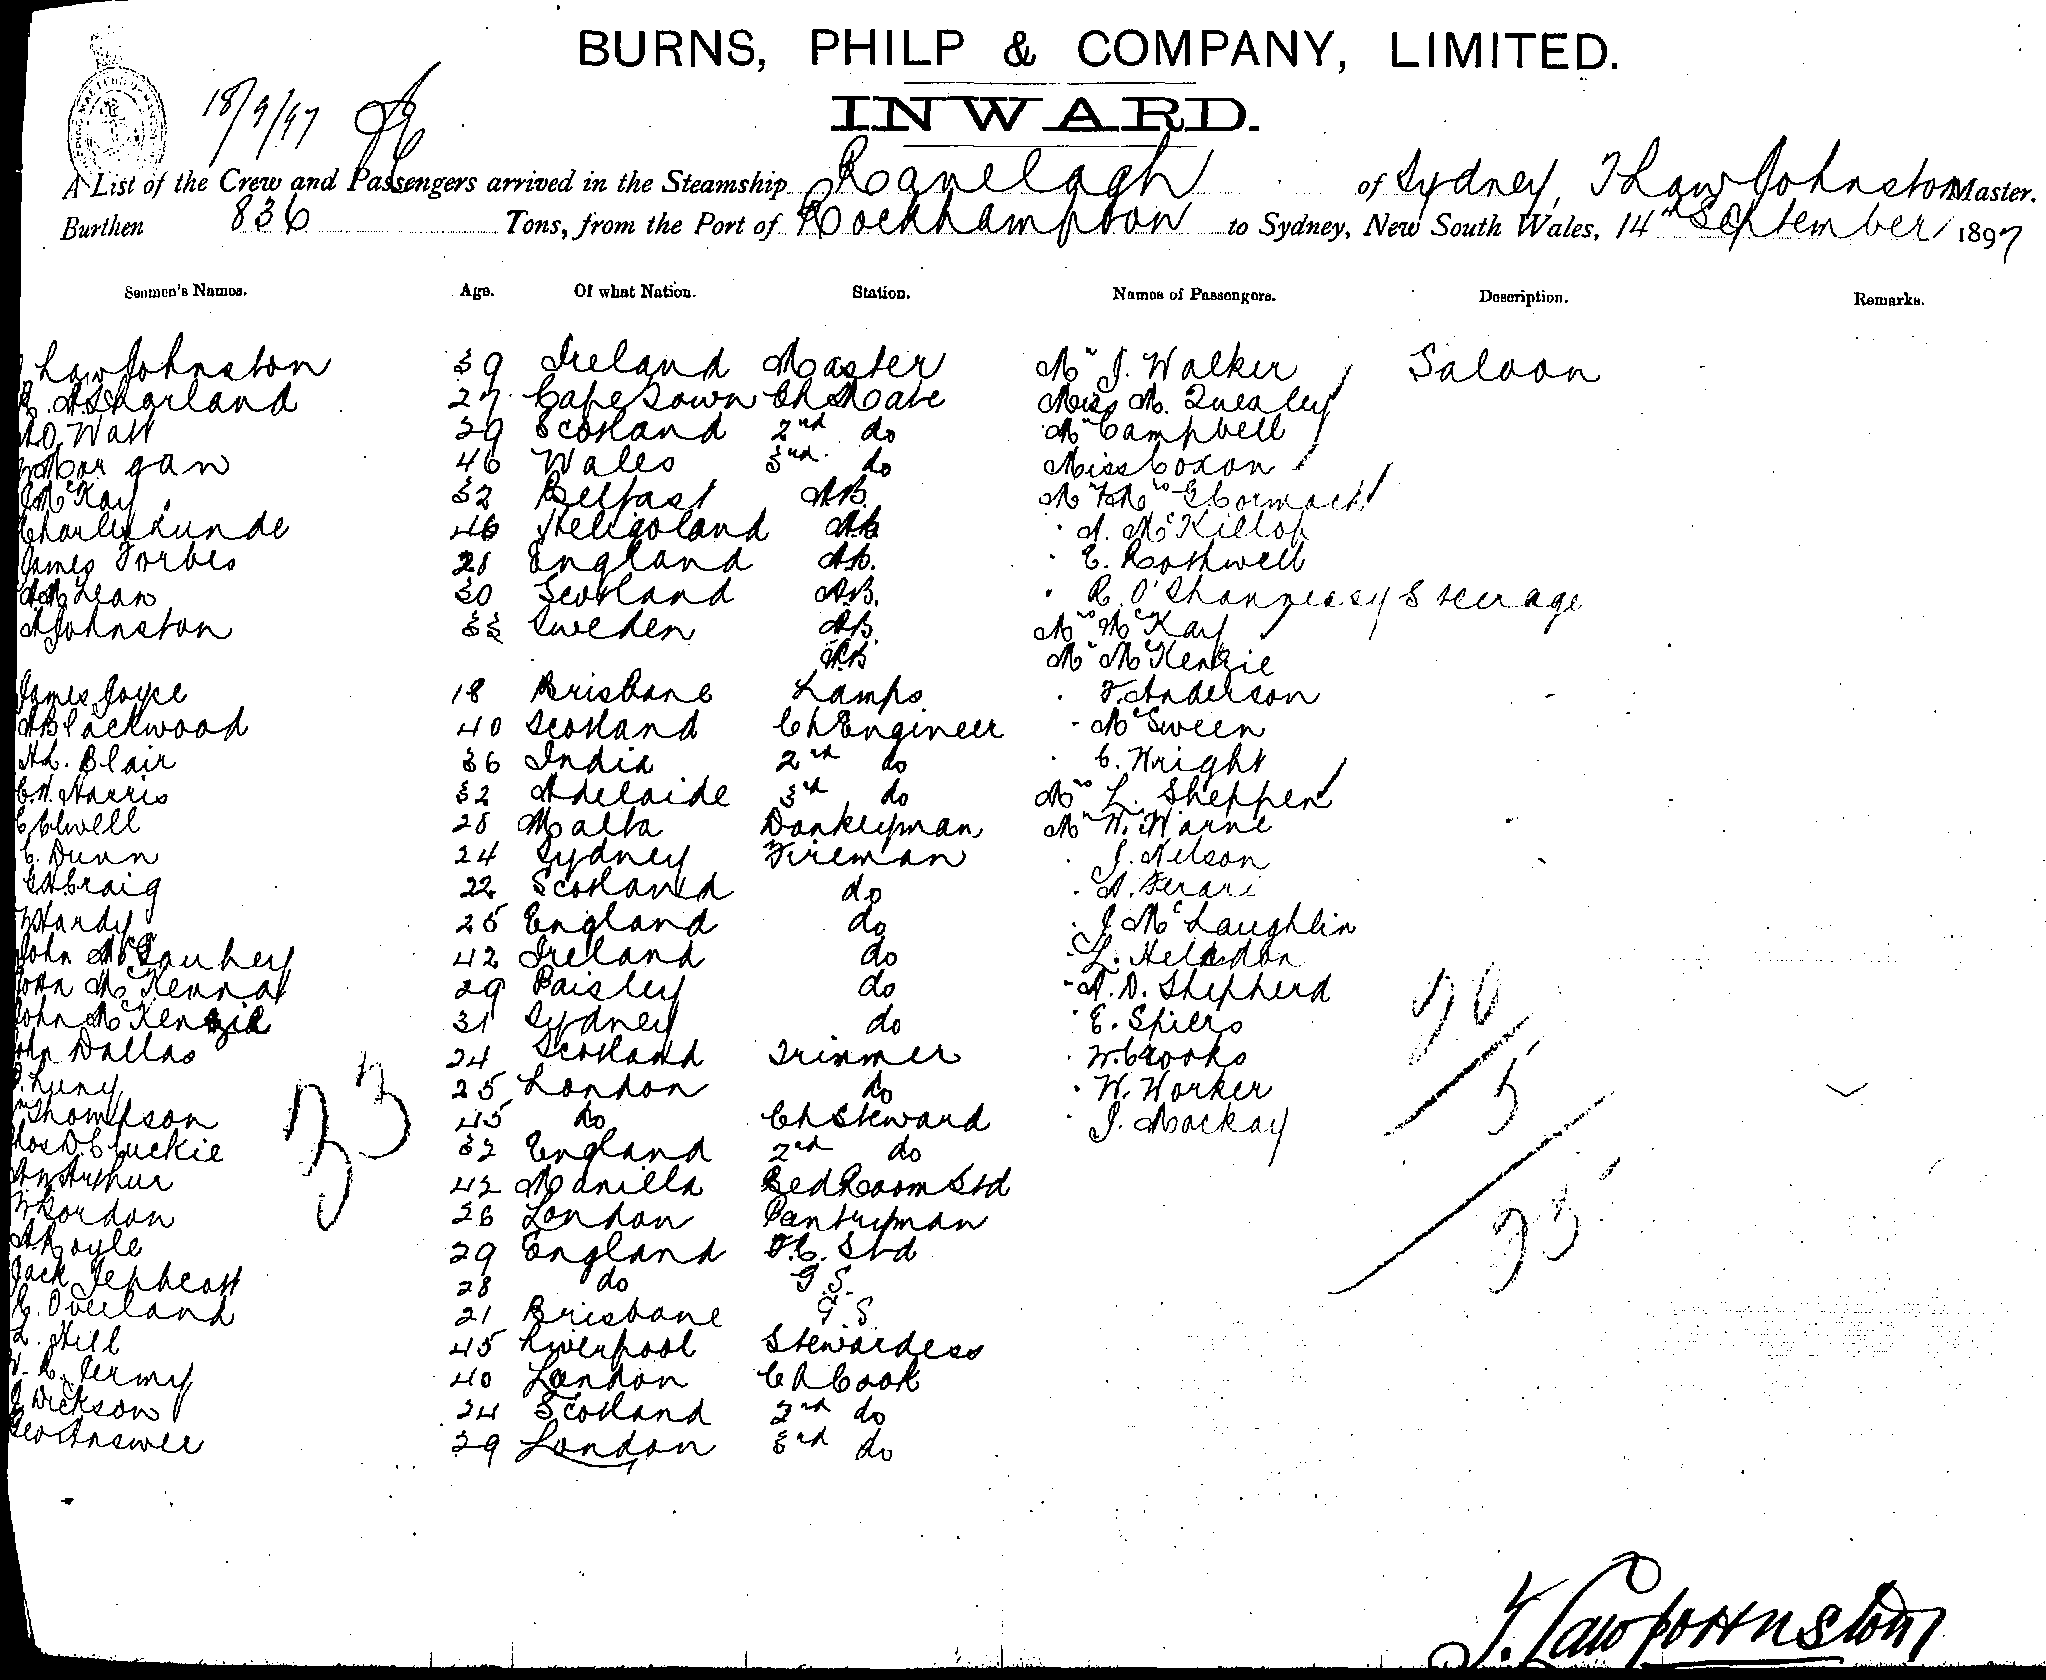 BURNS, PHILP & COMPANY, LIMITED.
INWARD.
18/9/97
A List of the Crew and Passengers arrived in the Steamship Ranelagh of Sydney, T Law Johnston Master.
Burthen 836 Tons, from the Port of Rockhampton to Sydney, New South Wales, 14th September 1897
Seamen's Names. Age. Of what Nation. Station. Names of Passengers. Description. Remarks.
Law Johnston 39 Ireland Master Mr J. Walker Saloon
McFarland 27 Cape Town Ch Mate Miss M. Quealey
Watt 29 Scotland 2nd do Mr Campbell
Morgan 46 Wales 3rd do Miss Coxon
McKay 32 Belfast AB. Mr & Mrs G Cormack
Charles Lunde 46 Heligoland AB A. McKillop
James Forbes 28 England AB. E. Rothwell
McLean 30 Scotland AB. R. O'Shannessy Steerage
A Johnston 33 Sweden AB. Mrs McKay
AB Mr McKenzie
James Joyce 18 Brisbane Lamps F. Anderson
A Blackwood 40 Scotland Ch Engineer McSween
Blair 36 India 2nd do C. Wright
Harris 32 Adelaide 3rd do Mrs L. Sheppen
Elwell 28 Malta Donkeyman Mr W. Warne
C. Dunn 24 Sydney Fireman J. Nelson
Craig 22 Scotland do A. Ferari
Hardy 25 England do J McLaughlin
John 42 Ireland do L.
John McKenna 29 Paisley do A. D. Shepherd
John McKenzie 31 Sydney do E. Spiers
John Dallas 24 Scotland Trimmer W. Crooks
Luny 25 London do W. Worker
Thompson 45 do Ch Steward J. Mackay
Cluckie 32 England 2nd do
Arthur 42 Manilla Bed Room Std
Gordon 26 London Pantryman
Royle 29 England F.C. Std
Jack Jephcott 28 do G S.
E. Overland 21 Brisbane G S
L. Hill 45 Liverpool Stewardess
Jermy 40 London Ch Cook
J Dickson 24 Scotland 2nd do
Geo Answer 29 London 3rd do
33
20
5
25
T. Law Johnston